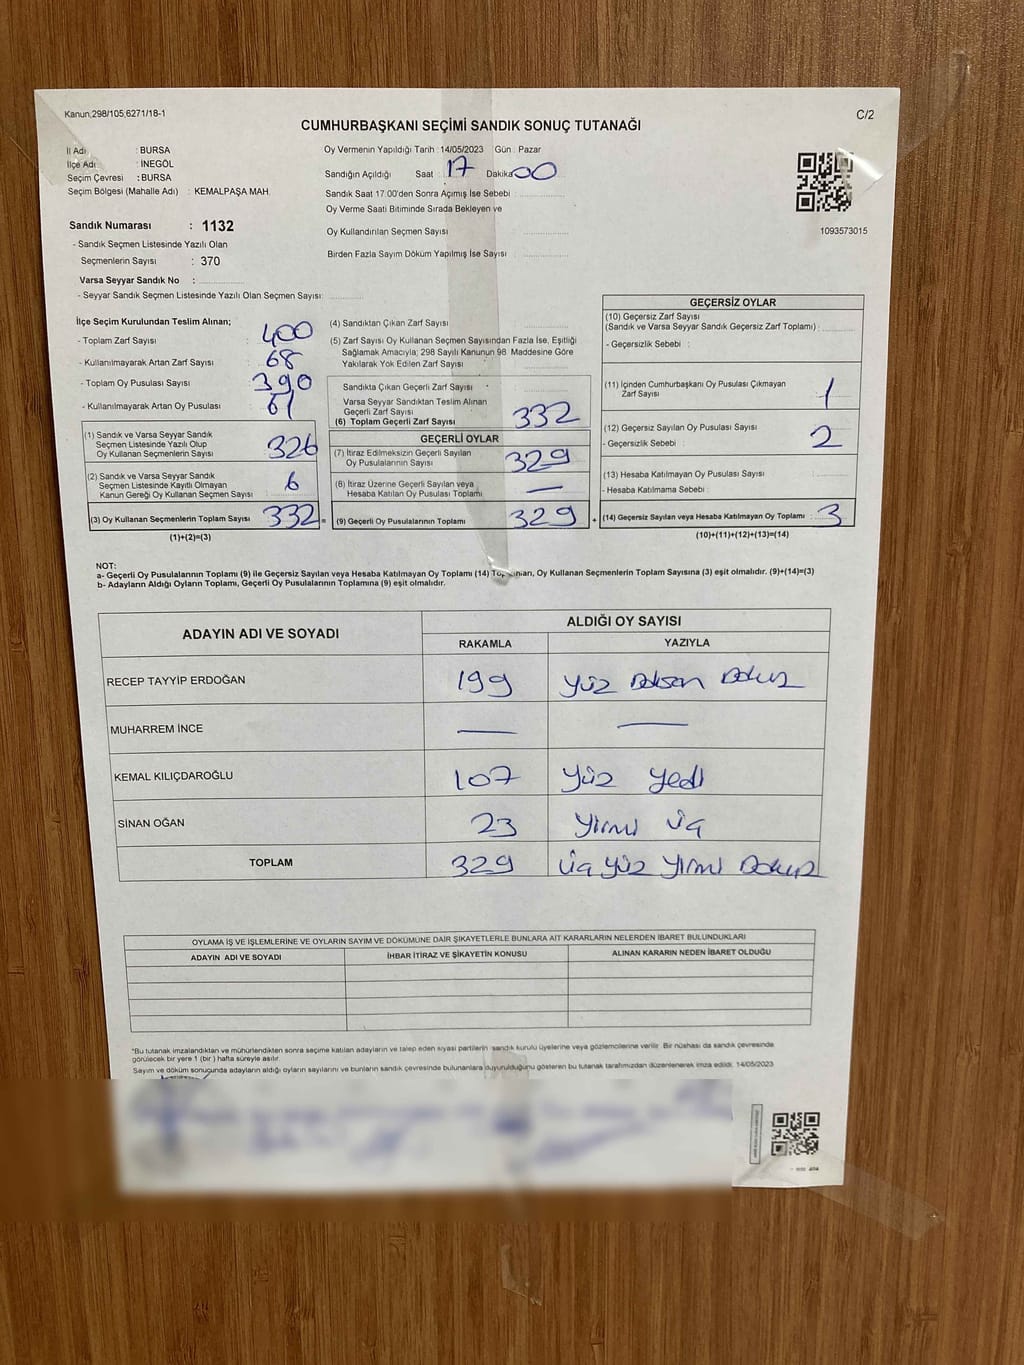 Kanun;298/105;6271/18-1
C/2
CUMHURBAŞKANI SEÇİMİ SANDIK SONUÇ TUTANAĞI
İl Adı : BURSA
İlçe Adı : İNEGÖL
Seçim Çevresi : BURSA
Seçim Bölgesi (Mahalle Adı) : KEMALPAŞA MAH.
Oy Vermenin Yapıldığı Tarih : 14/05/2023 Gün : Pazar
Sandığın Açıldığı Saat : 17 Dakika 00
Sandık Saat 17:00'den Sonra Açımış İse Sebebi :
Oy Verme Saati Bitiminde Sırada Bekleyen ve
Oy Kullandırılan Seçmen Sayısı :
Birden Fazla Sayım Döküm Yapılmış İse Sayısı :
1093573015
Sandık Numarası : 1132
- Sandık Seçmen Listesinde Yazılı Olan
Seçmenlerin Sayısı : 370
Varsa Seyyar Sandık No :
- Seyyar Sandık Seçmen Listesinde Yazılı Olan Seçmen Sayısı:
İlçe Seçim Kurulundan Teslim Alınan;
- Toplam Zarf Sayısı : 400
- Kullanılmayarak Artan Zarf Sayısı : 68
- Toplam Oy Pusulası Sayısı : 390
- Kullanılmayarak Artan Oy Pusulası : 61
(1) Sandık ve Varsa Seyyar Sandık
Seçmen Listesinde Yazılı Olup
Oy Kullanan Seçmenlerin Sayısı : 326
(2) Sandık ve Varsa Seyyar Sandık
Seçmen Listesinde Kayıtlı Olmayan
Kanun Gereği Oy Kullanan Seçmen Sayısı : 6
(3) Oy Kullanan Seçmenlerin Toplam Sayısı : 332 =
(1)+(2)=(3)
(4) Sandıktan Çıkan Zarf Sayısı :
(5) Zarf Sayısı Oy Kullanan Seçmen Sayısından Fazla İse, Eşitliği
Sağlamak Amacıyla; 298 Sayılı Kanunun 98 Maddesine Göre
Yakılarak Yok Edilen Zarf Sayısı :
Sandıkta Çıkan Geçerli Zarf Sayısı :
Varsa Seyyar Sandıktan Teslim Alınan
Geçerli Zarf Sayısı :
(6) Toplam Geçerli Zarf Sayısı : 332
GEÇERLİ OYLAR
(7) İtiraz Edilmeksizin Geçerli Sayılan
Oy Pusulalarının Sayısı : 329
(8) İtiraz Üzerine Geçerli Sayılan veya
Hesaba Katılan Oy Pusulası Toplamı : —
(9) Geçerli Oy Pusulalarının Toplamı : 329 +
GEÇERSİZ OYLAR
(10) Geçersiz Zarf Sayısı
(Sandık ve Varsa Seyyar Sandık Geçersiz Zarf Toplamı) :
- Geçersizlik Sebebi :
(11) İçinden Cumhurbaşkanı Oy Pusulası Çıkmayan
Zarf Sayısı : 1
(12) Geçersiz Sayılan Oy Pusulası Sayısı : 2
- Geçersizlik Sebebi :
(13) Hesaba Katılmayan Oy Pusulası Sayısı :
- Hesaba Katılmama Sebebi :
(14) Geçersiz Sayılan veya Hesaba Katılmayan Oy Toplamı : 3
(10)+(11)+(12)+(13)=(14)
NOT:
a- Geçerli Oy Pusulalarının Toplamı (9) ile Geçersiz Sayılan veya Hesaba Katılmayan Oy Toplamı (14) Toplamları, Oy Kullanan Seçmenlerin Toplam Sayısına (3) eşit olmalıdır. (9)+(14)=(3)
b- Adayların Aldığı Oyların Toplamı, Geçerli Oy Pusulalarının Toplamına (9) eşit olmalıdır.
ADAYIN ADI VE SOYADI
ALDIĞI OY SAYISI
RAKAMLA YAZIYLA
RECEP TAYYİP ERDOĞAN 199 Yüz Doksan Dokuz
MUHARREM İNCE — —
KEMAL KILIÇDAROĞLU 107 Yüz Yedi
SİNAN OĞAN 23 Yirmi Üç
TOPLAM 329 Üç Yüz Yirmi Dokuz
OYLAMA İŞ VE İŞLEMLERİNE VE OYLARIN SAYIM VE DÖKÜMÜNE DAİR ŞİKAYETLERLE BUNLARA AİT KARARLARIN NELERDEN İBARET BULUNDUKLARI
ADAYIN ADI VE SOYADI İHBAR İTİRAZ VE ŞİKAYETİN KONUSU ALINAN KARARIN NEDEN İBARET OLDUĞU
*Bu tutanak imzalandıktan ve mühürlendikten sonra seçime katılan adayların ve talep eden siyasi partilerin sandık kurulu üyelerine veya gözlemcilerine verilir. Bir nüshası da sandık çevresinde
görülecek bir yere 1 (bir) hafta süreyle asılır.
Sayım ve döküm sonucunda adayların aldığı oyların sayılarını ve bunların sandık çevresinde bulunanlara duyurulduğunu gösteren bu tutanak tarafımızdan düzenlenerek imza edildi. 14/05/2023